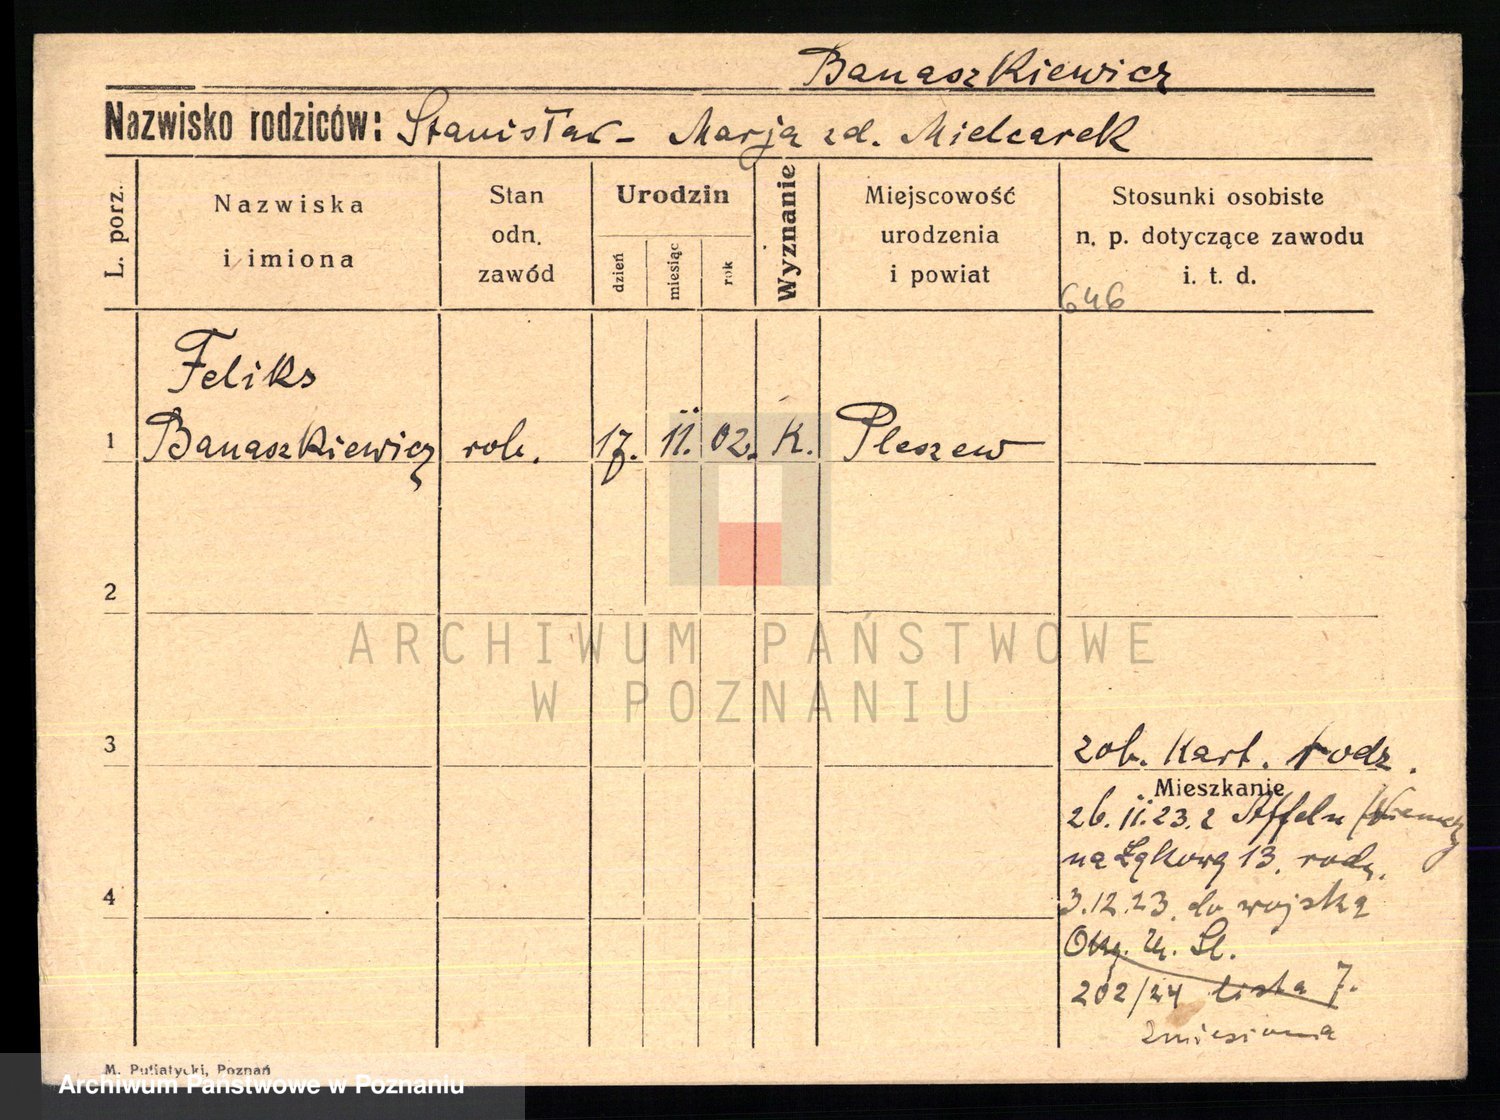 Banaszkiewicz
Nazwisko rodziców: Stanisław - Marja zd. Mielcarek
L. porz.
Nazwiska
i imiona
Stan
odn.
zawód
Urodzin
dzień
miesiąc
rok
Wyznanie
Miejscowość
urodzenia
i powiat
Stosunki osobiste
n. p. dotyczące zawodu
i. t. d.
646
Feliks
1 Banaszkiewicz rob. 17. II. 02. K. Pleszew
2
ARCHIWUM PAŃSTWOWE
W POZNANIU
3
zob. Kart. rodz.
Mieszkanie
26. II. 23. z Affeln /Niemcy
na Łąkową 13. rodz.
4
3.12.23. do wojska
U. Sl.
202/24 lista 7.
zniesiona
M. Putiatycki, Poznań
Archiwum Państwowe w Poznaniu